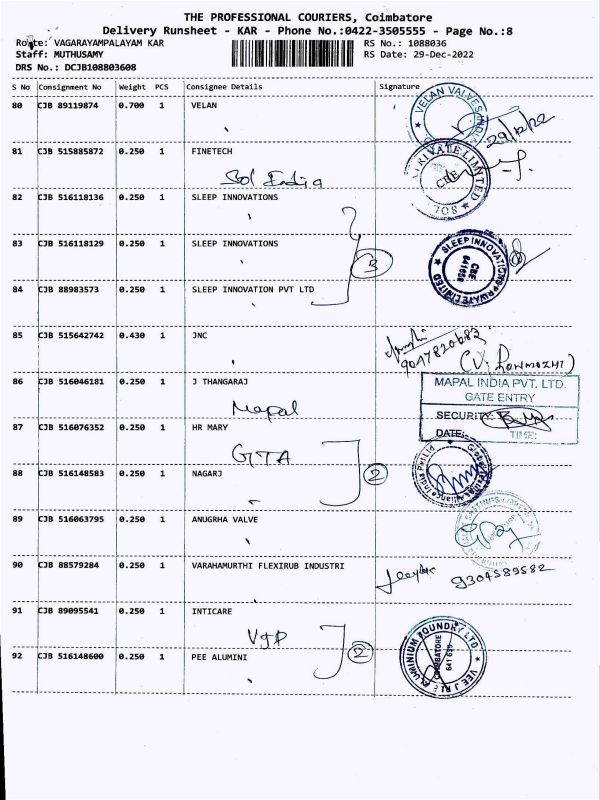 THE PROFESSIONAL COURIERS, Coimbatore
Delivery Runsheet - KAR - Phone No.:0422-3505555 - Page No.:8
Route: VAGARAYAMPALAYAM KAR RS No.: 1088036
Staff: MUTHUSAMY RS Date: 29-Dec-2022
DRS No.: DCJB108803608
S No Consignment No Weight PCS Consignee Details Signature
80 CJB 89119874 0.700 1 VELAN
VELAN VALVES INDIA
29/12/22
81 CJB 515885872 0.250 1 FINETECH
Sol India
PRIVATE LIMITED
CBE
SOL
82 CJB 516118136 0.250 1 SLEEP INNOVATIONS
83 CJB 516118129 0.250 1 SLEEP INNOVATIONS
3
SLEEP INNOVATIONS PRIVATE LIMITED
CBE
641659
84 CJB 88983573 0.250 1 SLEEP INNOVATION PVT LTD
85 CJB 515642742 0.430 1 JNC
9047820682
86 CJB 516046181 0.250 1 J THANGARAJ
Mapal
MAPAL INDIA PVT. LTD.
GATE ENTRY
SECURITY:
DATE: TIME:
87 CJB 516076352 0.250 1 HR MARY
GTA
88 CJB 516148583 0.250 1 NAGARJ
2
89 CJB 516063795 0.250 1 ANUGRHA VALVE
90 CJB 88579284 0.250 1 VARAHAMURTHI FLEXIRUB INDUSTRI
9304589582
91 CJB 89095541 0.250 1 INTICARE
VJP
2
ALUMINIUM FOUNDRY LTD.
COIMBATORE
641 659
92 CJB 516148600 0.250 1 PEE ALUMINI